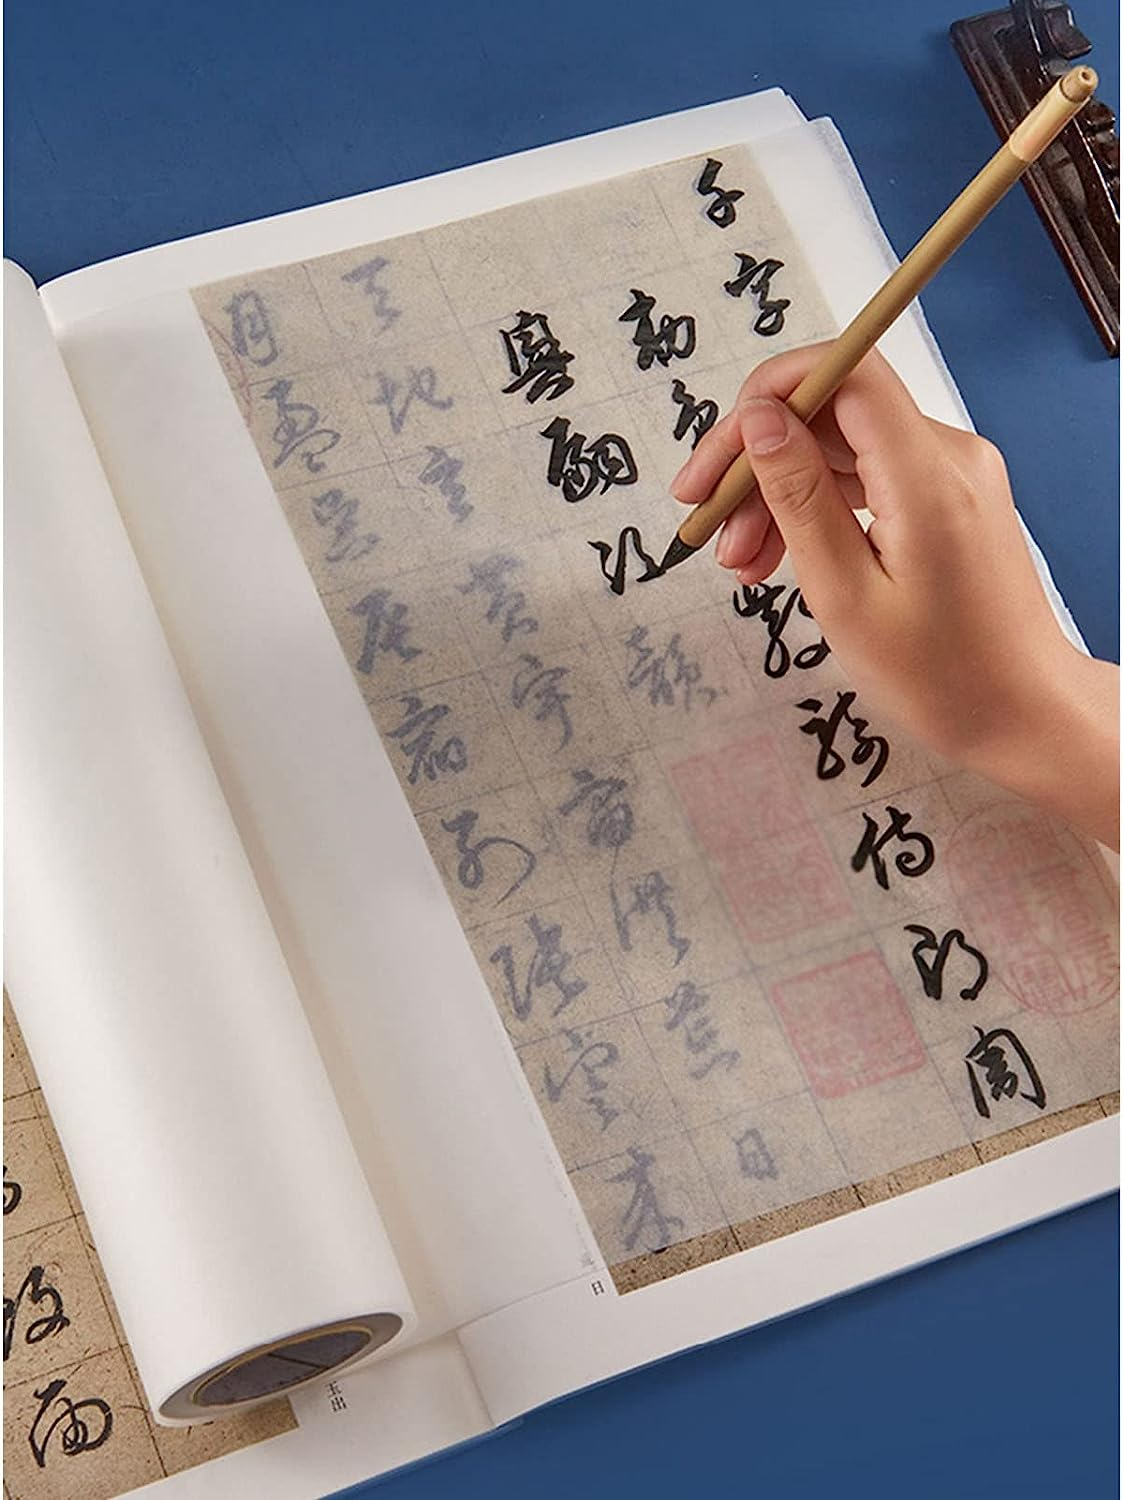 千字
勅員散騎侍郎周
興嗣次韻
天地玄黃宇宙洪荒日
月盈昃辰宿列張寒来
日
玉出